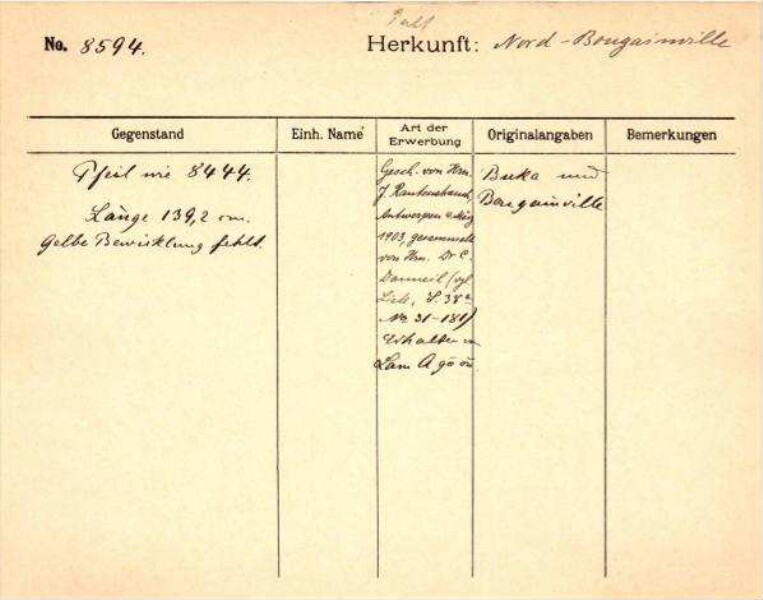 No. 8594.
Herkunft: Nord-Bougainville
Gegenstand
Einh. Name
Art der
Erwerbung
Originalangaben
Bemerkungen
Pfeil wie 8444.
Länge 139,2 cm.
Gelbe Bewicklung fehlt.
Gesch. von Hrn.
J. Rautenstrauch,
Antwerpen
1903, gesammelt
von Hrn. Dr C.
Danneil (vgl.
Liste, S. 38
No 31-181)
Erhalten
Lam
Buka und
Bougainville